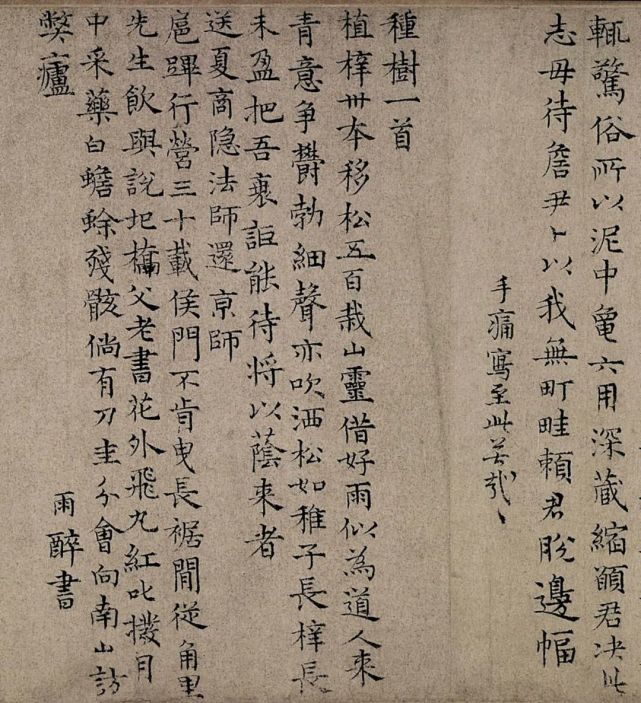 輒驚俗所以泥中龜六用深藏縮頭君决此
志毋待詹尹卜以我無町畦賴君脫邊幅
手痛寫至此苦哉〻
種樹一首
植梓卅本移松五百栽山靈借好雨似為道人来
青意争欝勃細聲亦吹洒松如稚子長梓長
未盈把吾衰詎能待将以蔭来者
送夏商隐法師還京師
扈蹕行營三十載侯門不肯曳長裾間從角里
先生飲與說圯橋父老書花外飛丸紅叱撥月
中采藥白蟾蜍殘骸倘有刀圭分會向南山訪
弊廬
雨醉書